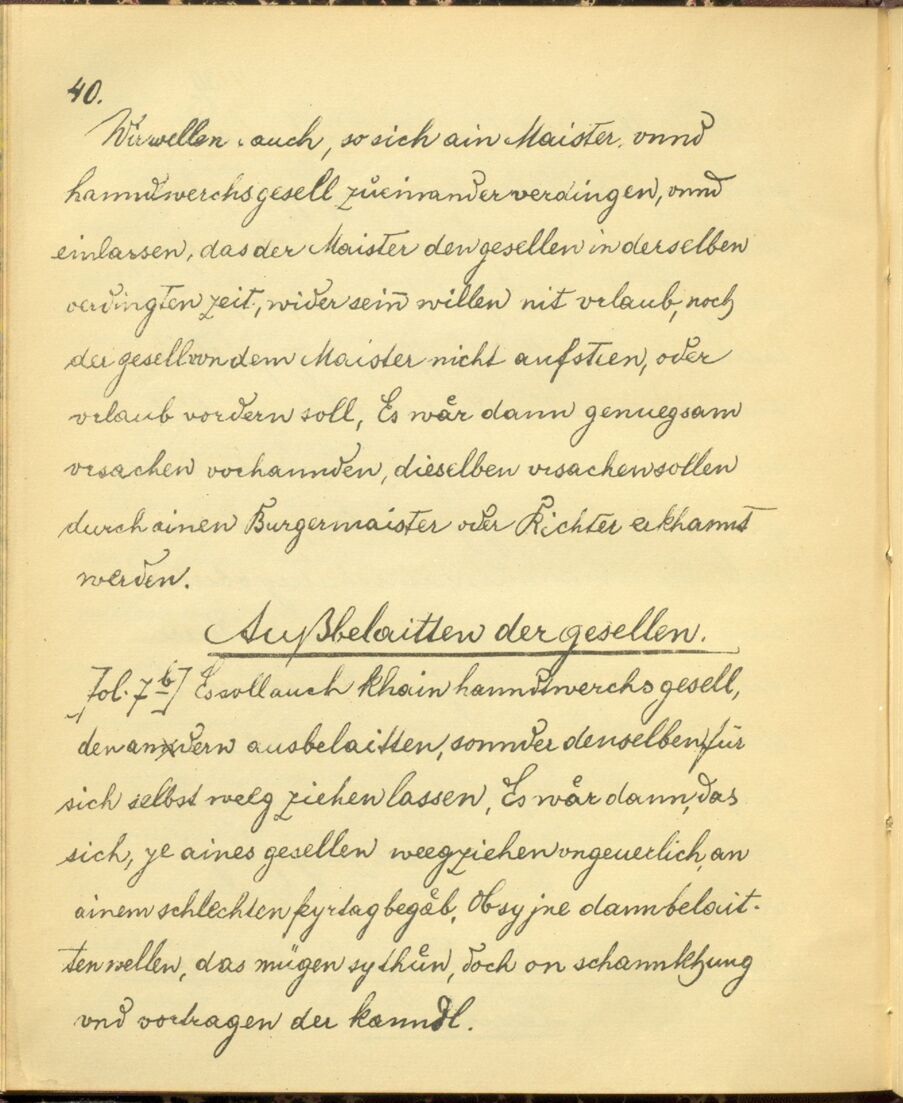 40.
Wir wellen auch, so sich ain Maister. vnnd
hanndtwerchs gesell zůeinander verdingen, vnnd
einlassen, das der Maister den gesellen in derselben
verdingten zeit, wider sein̄ willen nit vrlaub, noch
der gesell von dem Maister nicht aufsteen, oder
vrlaub vordern soll, Es wår dann genuegsam
vrsachen vorhannden, dieselben vrsachen sollen
durch ainen Burgermaister oder Richter erkhannt
werden.
Außbelaitten der gesellen.
[Fol. 7 b] Es soll auch khain hanndtwerchs gesell,
den anndern ausbelaitten, sonnder denselben, für
sich selbst weeg ziehen lassen, Es wår dann, das
sich, ye aines gesellen weegziehen vngeuerlich, an
ainem schlechten feyrtag begåb, Ob sy jne dann belait-
ten wellen, das mügen sy thůn, doch on schannkhung
vnd vortragen der kanndl.